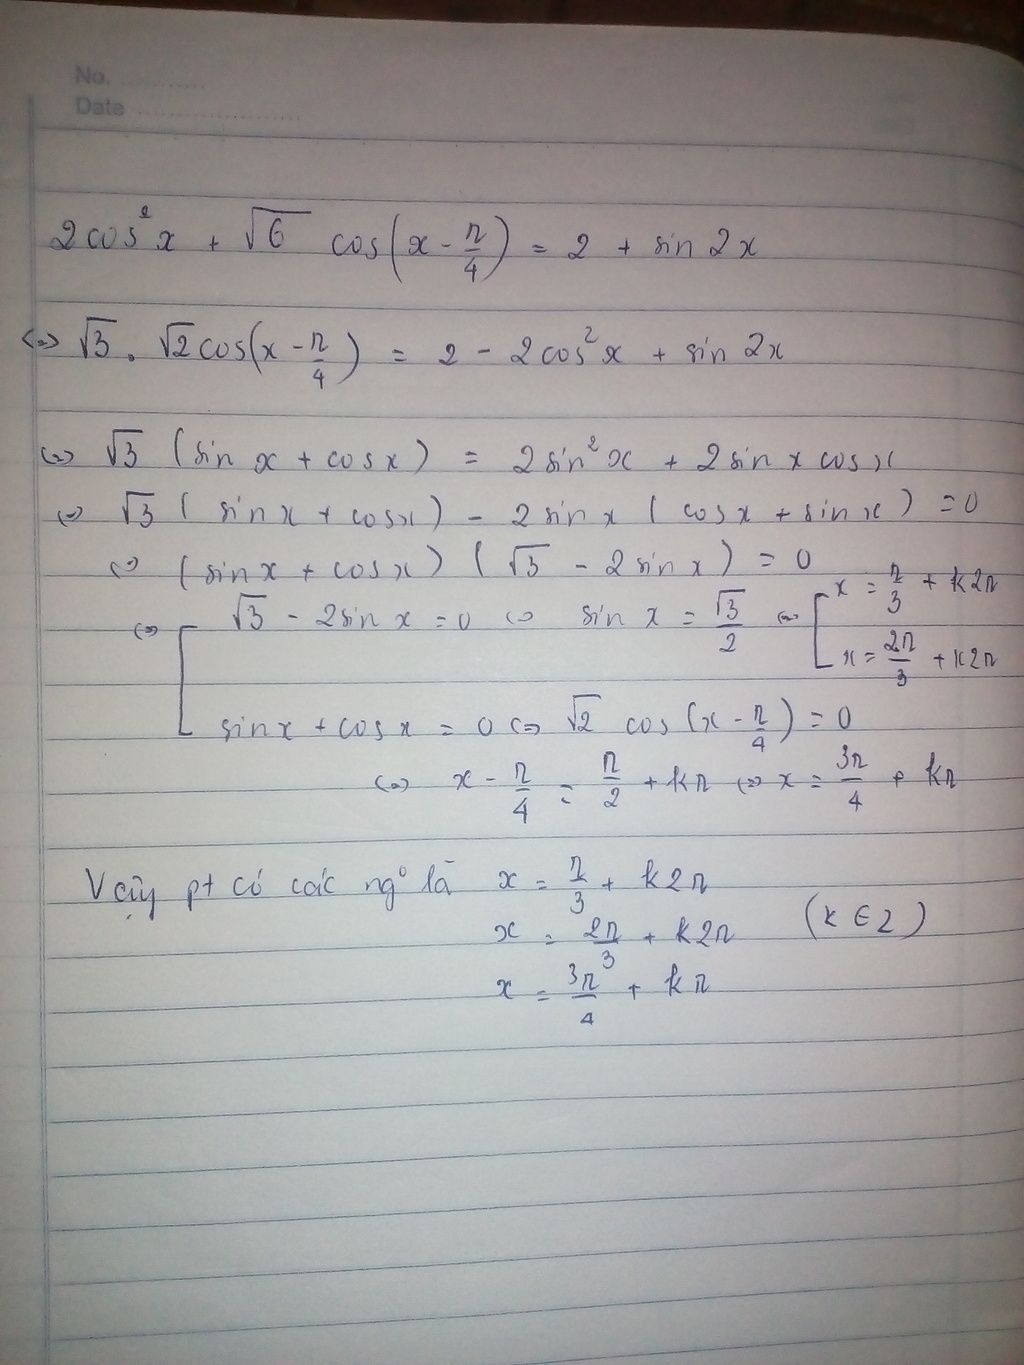 No. ............
Date ........................
2cos²x + √6 cos(x - π/4) = 2 + sin 2x
<=> √3 . √2cos(x - π/4) = 2 - 2cos²x + sin 2x
<=> √3 (sin x + cosx) = 2sin²x + 2sin x cosx
<=> √3 ( sinx + cosx) - 2sinx ( cosx + sinx ) = 0
<=> (sinx + cosx) (√3 - 2sinx) = 0
<=> [ √3 - 2sinx = 0 <=> sin x = √3/2 <=> [ x = π/3 + k2π
x = 2π/3 + k2π
sinx + cosx = 0 <=> √2 cos(x - π/4) = 0
<=> x - π/4 = π/2 + kπ <=> x = 3π/4 + kπ
Vậy pt có các ng° là x = π/3 + k2π
x = 2π/3 + k2π (k ∈ Z)
x = 3π/4 + kπ